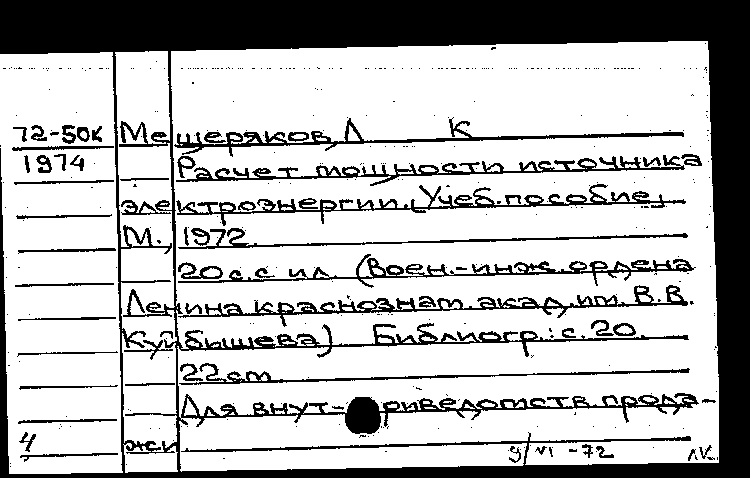 72-50к Мещеряков, Л К
1974 Расчет мощности источника
электроэнергии. [Учеб. пособие]
М., 1972.
20 с. с ил. (Воен.-инж. ордена
Ленина краснознам. акад. им. В.В.
Куйбышева) Библиогр.: с. 20.
22 см.
Для внут-риведомств. прода-
4 жи.
9/VI -72 ЛК.